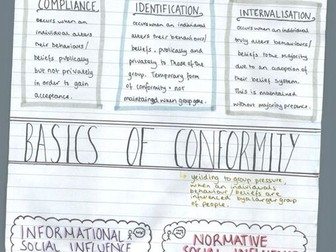 COMPLIANCE
occurs when an
individual alters
their behaviours/
beliefs publically
but not privately
in order to gain
acceptance.
IDENTIFICATION
occurs when an individual
alters their behaviour/
beliefs, publically and
privately to those of the
group. Temporary form
of conformity - not
maintained when group gone.
INTERNALISATION
occurs when an individual
truly alters behaviours/
beliefs to the majority
due to an adoption of
their belief system.
This is maintained
without majority pressure.
BASICS OF CONFORMITY
* yeilding to group pressure,
when an individuals
behaviour/beliefs are
influenced by a larger group
of people.
INFORMATIONAL
SOCIAL INFLUENCE
NORMATIVE
SOCIAL INFLUENCE